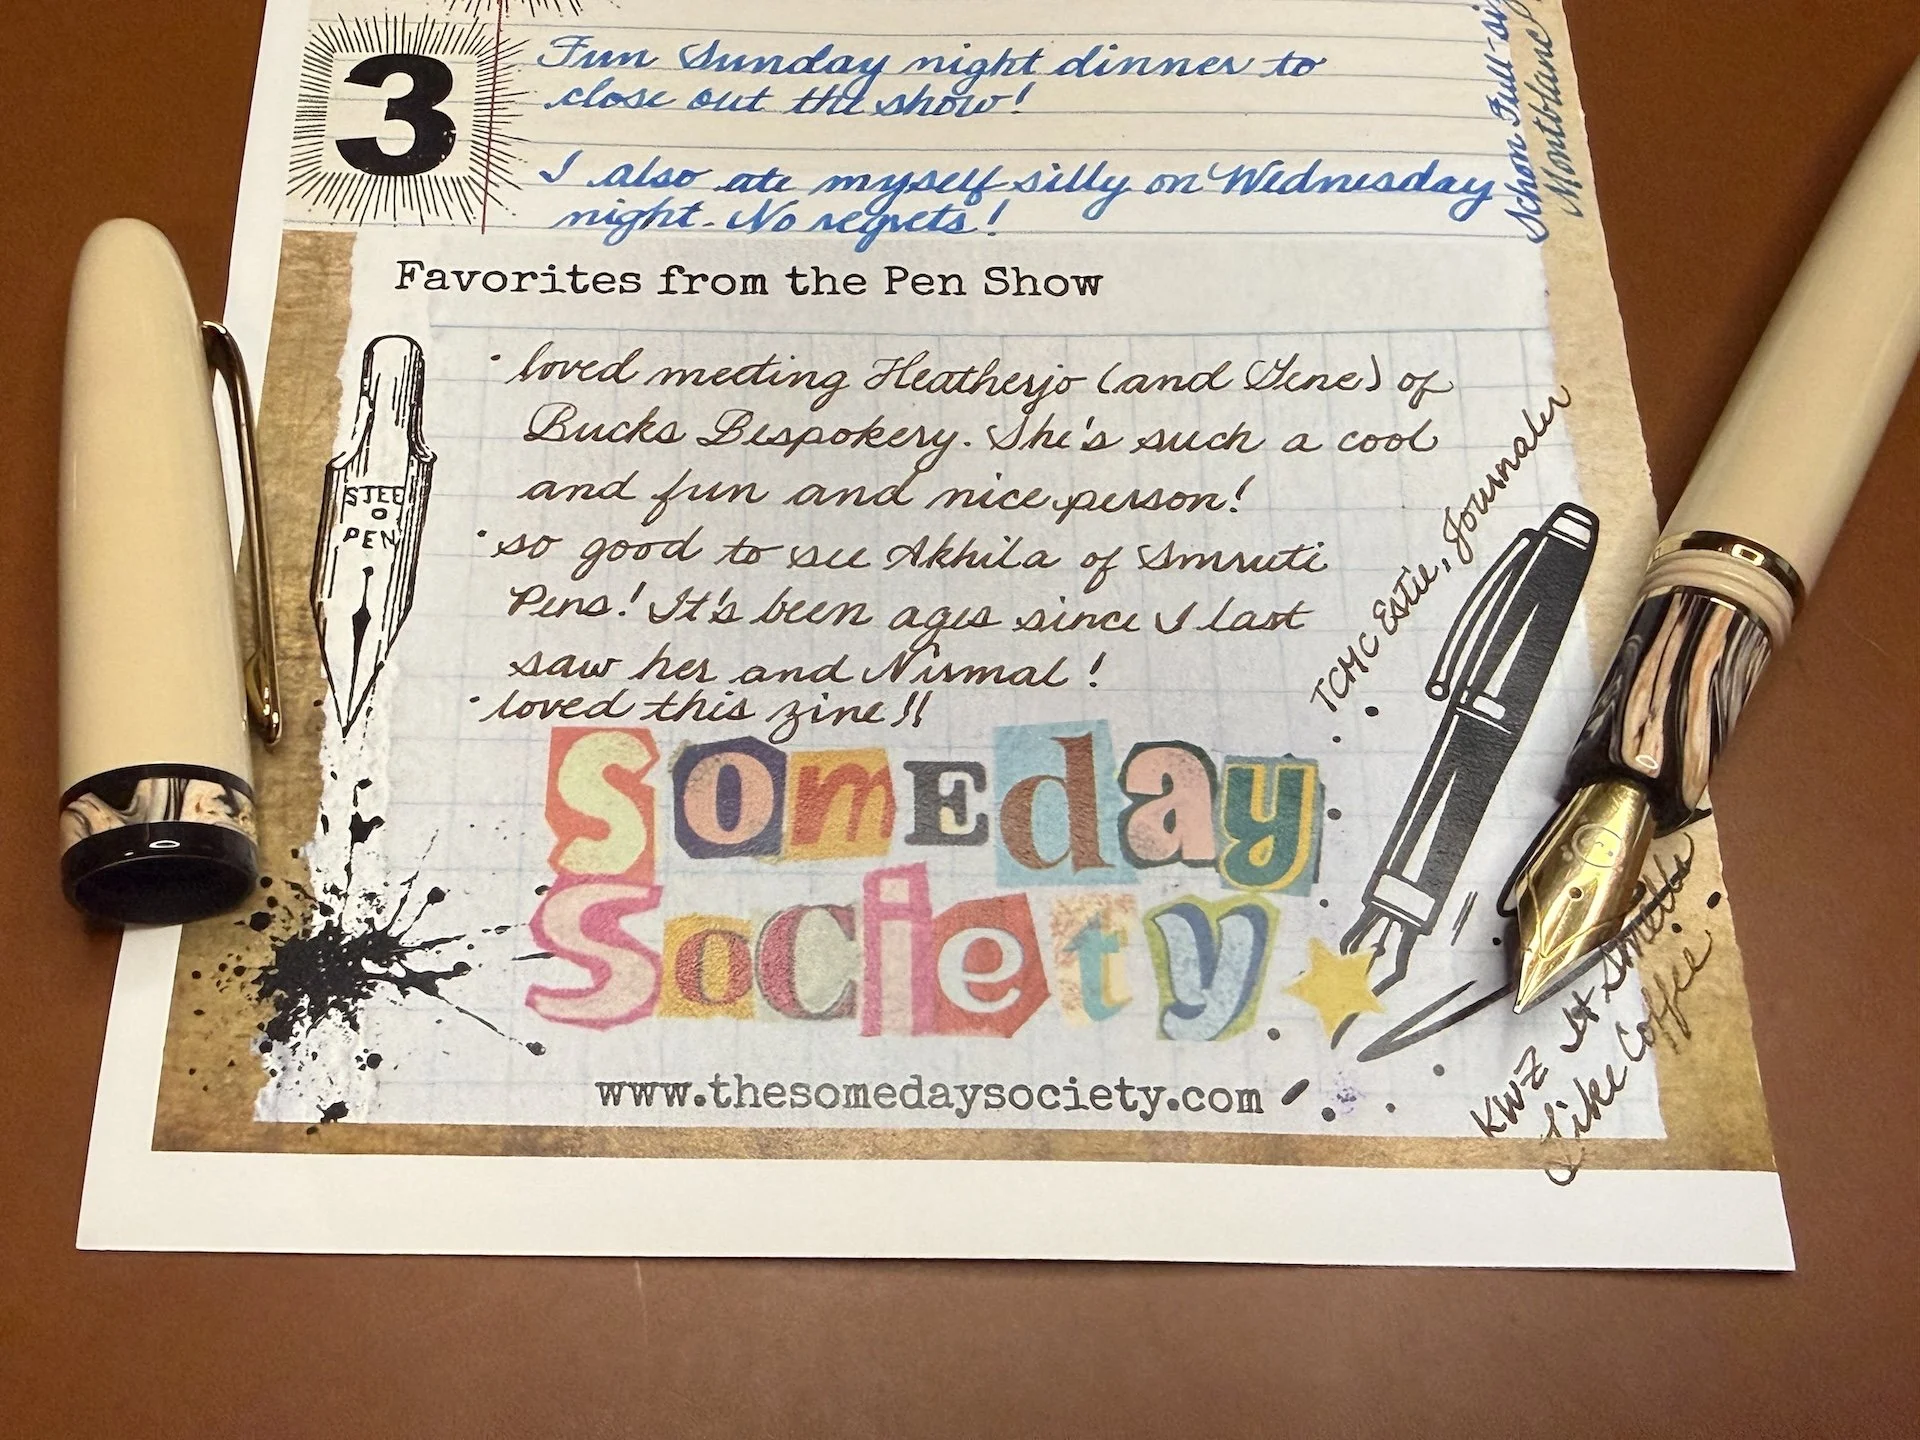 3
Fun Sunday night dinner to
close out the show!
I also ate myself silly on Wednesday
night. No regrets!
Schon Full-si
Montblanc
Favorites from the Pen Show
STEE
O
PEN
· loved meeting Heatherjo (and Gene) of
Bucks Bespokery. She's such a cool
and fun and nice person!
· so good to see Akhila of Smruti
Pens! It's been ages since I last
saw her and Nirmal!
· loved this zine!!
TCMC Estie, Journaler
SOmEday
Society
www.thesomedaysociety.com
KWZ It Smells
Like Coffee